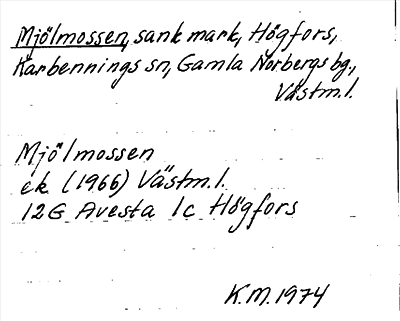 Mjölmossen, sank mark, Högfors,
Karbennings sn, Gamla Norbergs bg.,
Västm.l.
Mjölmossen
ek (1966) Västm.l.
12G Avesta 1c Högfors
K.M. 1974